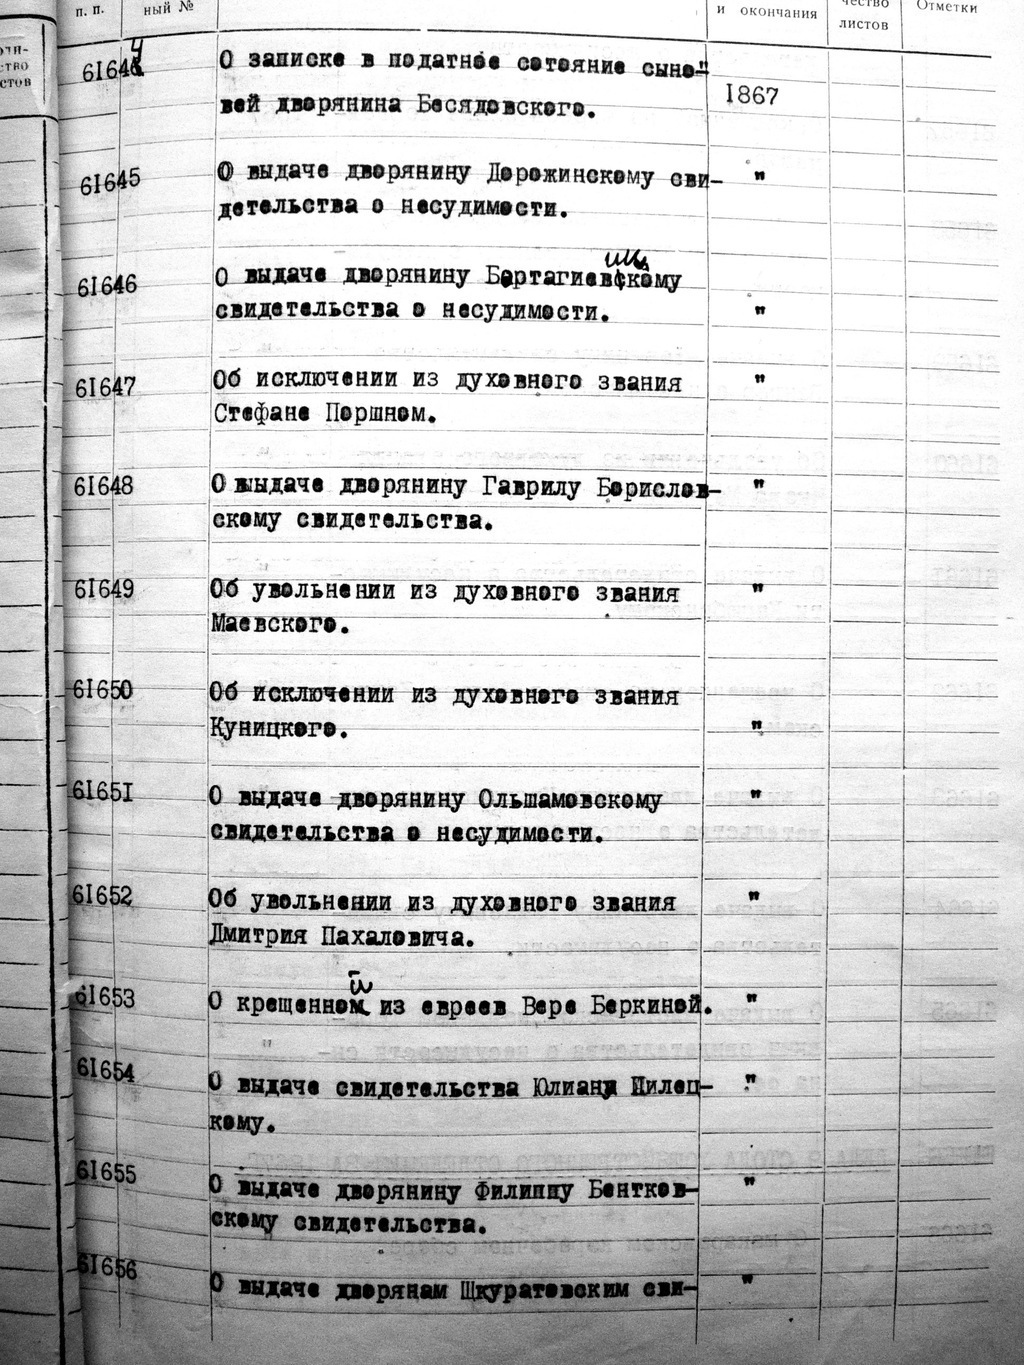 п. п.
ный №
и окончания
чество
листов
Отметки
61644
О записке в податное сотояние сыно-
вей дворянина Бесядовского.
1867
61645
О выдаче дворянину Дорожинскому сви- "
детельства о несудимости.
61646
О выдаче дворянину Бартагиевскому
свидетельства о несудимости. "
61647
Об исключении из духовного звания "
Стефане Поршном.
61648
О выдаче дворянину Гаврилу Борислов- "
скому свидетельства.
61649
Об увольнении из духовного звания "
Маевского.
61650
Об исключении из духовного звания
Куницкого. "
61651
О выдаче дворянину Ольшамовскому "
свидетельства о несудимости.
61652
Об увольнении из духовного звания "
Дмитрия Пахаловича.
61653
О крещенной из евреев Вере Беркиной. "
61654
О выдаче свидетельства Юлиану Пилец- "
кому.
61655
О выдаче дворянину Филиппу Бентков- "
скому свидетельства.
61656
О выдаче дворянам Шкуратовским сви- "